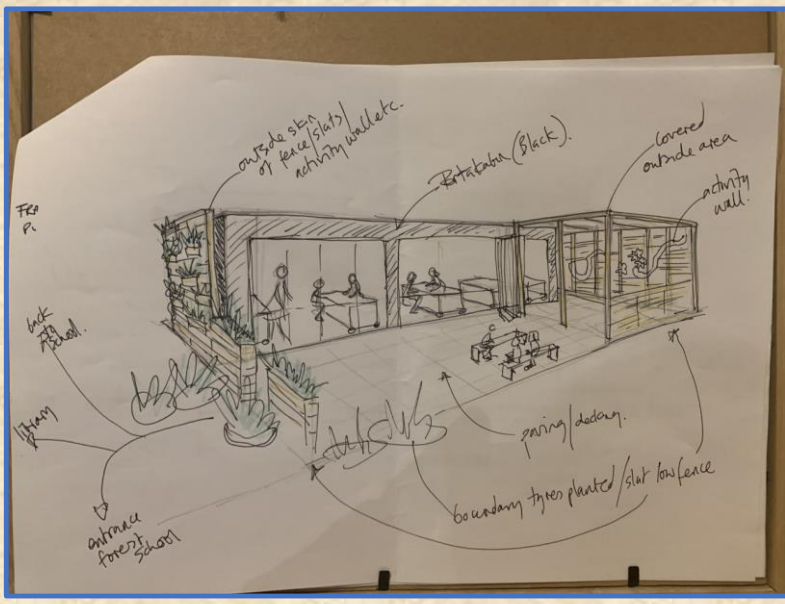 outside skin
of fence/slats/
activity wall etc.
Portakabin (Black).
Covered
outside area
activity
wall.
back
to
school.
library
entrance
forest
school
paving/decking.
boundary tyres planted/slat low fence